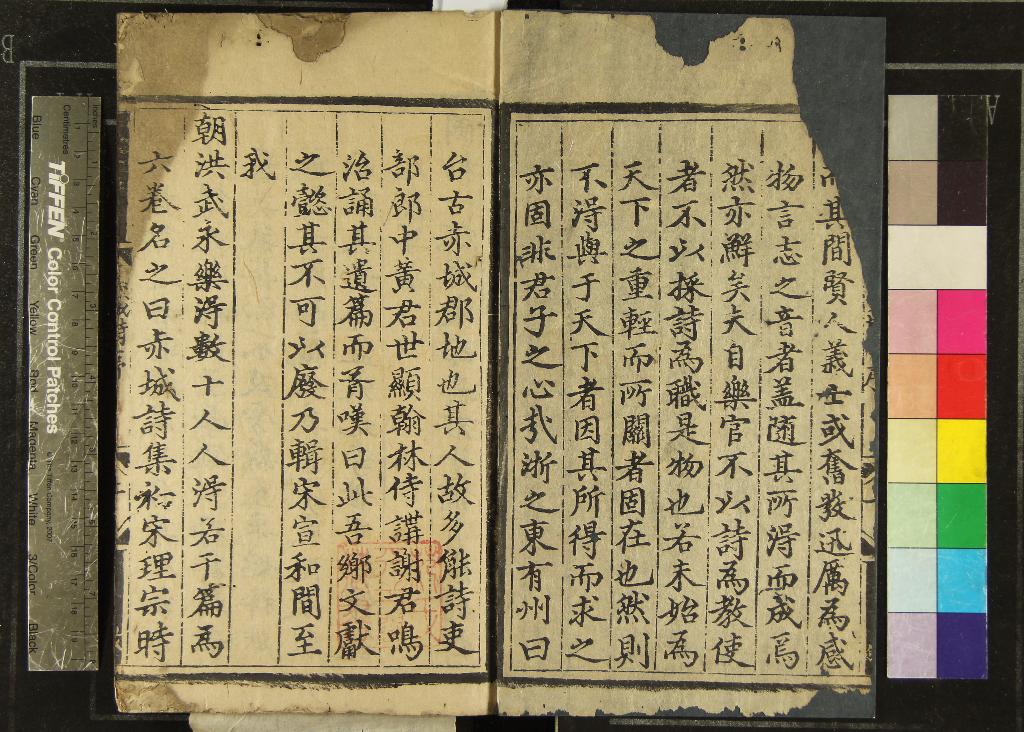 而其間賢人義士或奮發迅厲為感
物言志之音者盖随其所淂而成焉
然亦鮮矣夫自樂官不以詩為教使
者不以採詩為職是物也若未始為
天下之重輕而所關者固在也然則
不淂與于天下者因其所得而求之
亦固非君子之心㢤浙之東有州曰
台古赤城郡地也其人故多能詩吏
部郎中黃君世顯翰林侍講謝君鳴
治誦其遺篇而胥嘆曰此吾鄉文獻
之懿其不可以廢乃輯宋宣和間至
我
朝洪武永樂淂數十人人淂若干篇為
六卷名之曰赤城詩集初宋理宗時
TIFFEN Color Control Patches
Centimetres
Inches
Blue
Cyan
Green
Yellow
Red
Magenta
White
3/Color
Black
B
A